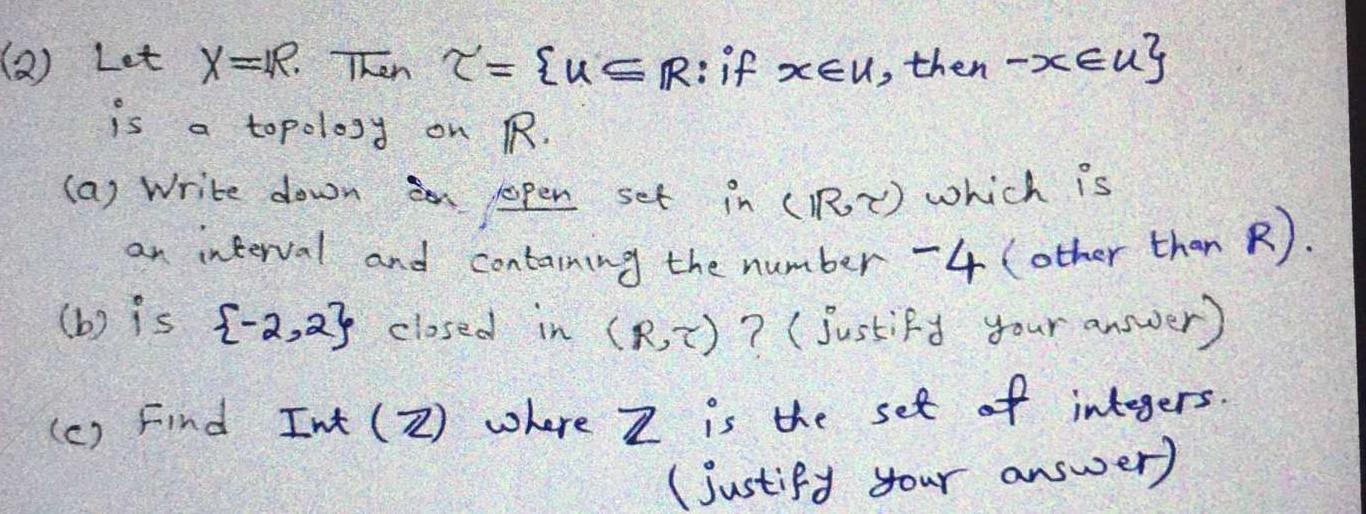 (2) Let X=ℝ. Then τ = {u ⊆ ℝ: if x∈u, then -x∈u}
is a topology on ℝ.
(a) Write down an open set in (ℝ,τ) which is
an interval and containing the number -4 (other than ℝ).
(b) is {-2,2} closed in (ℝ,τ) ? (justify your answer)
(c) Find Int (ℤ) where ℤ is the set of integers.
(justify your answer)